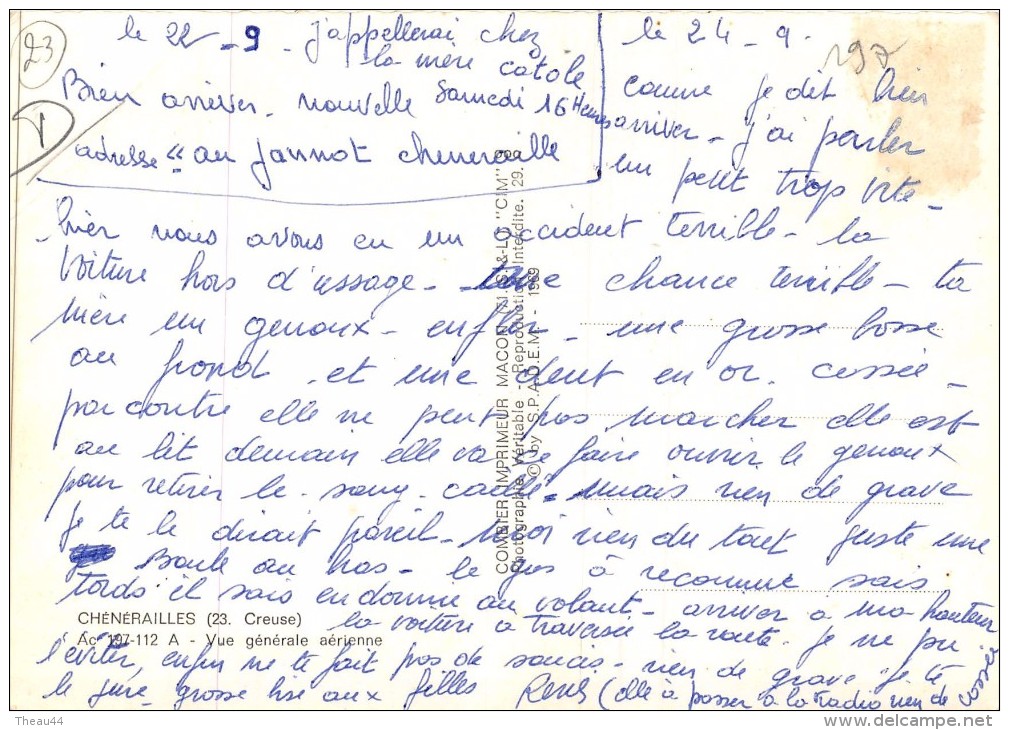 23
1
le 22-9. j'appellerai chez
la mère catole
Bien arriver. nouvelle Samedi 16 Heures
adresse "au Jannot cheneraille
le 24-9.
197
comme je dit hier
arriver - j'ai parler
un petit trop vite -
hier nous avons eu un accident terrible - la
Voiture hors d'ussage - une chance terrible - ta
mère un genoux - enfler - une grosse bosse
au frond - et une dent en or. cassée -
par contre elle ne peut pas marcher elle est
au lit demain elle va se faire ouvrir le genoux
pour retirer le sang - caillé - mais rien de grave
je te le dirait pareil - moi rien du tout juste une
Boule au bras - le gus à reconnue sais
tords il sais endormie au volant - arriver à ma hauteur
la voiture à traversée la route. je ne pu
l'éviter, enfin ne te fait pas de soucis - rien de grave je te
le jure grosse bise aux filles René (elle à passer à la radio rien de
CHÉNÉRAILLES (23. Creuse)
Ac 197-112 A - Vue générale aérienne
COMBIER IMPRIMEUR MACON (S.-&-L.) "CIM"
Photographie Véritable - Reproduction Interdite. 29.
© by S.P.A.D.E.M. - 1969
Theau44
delcampe.net